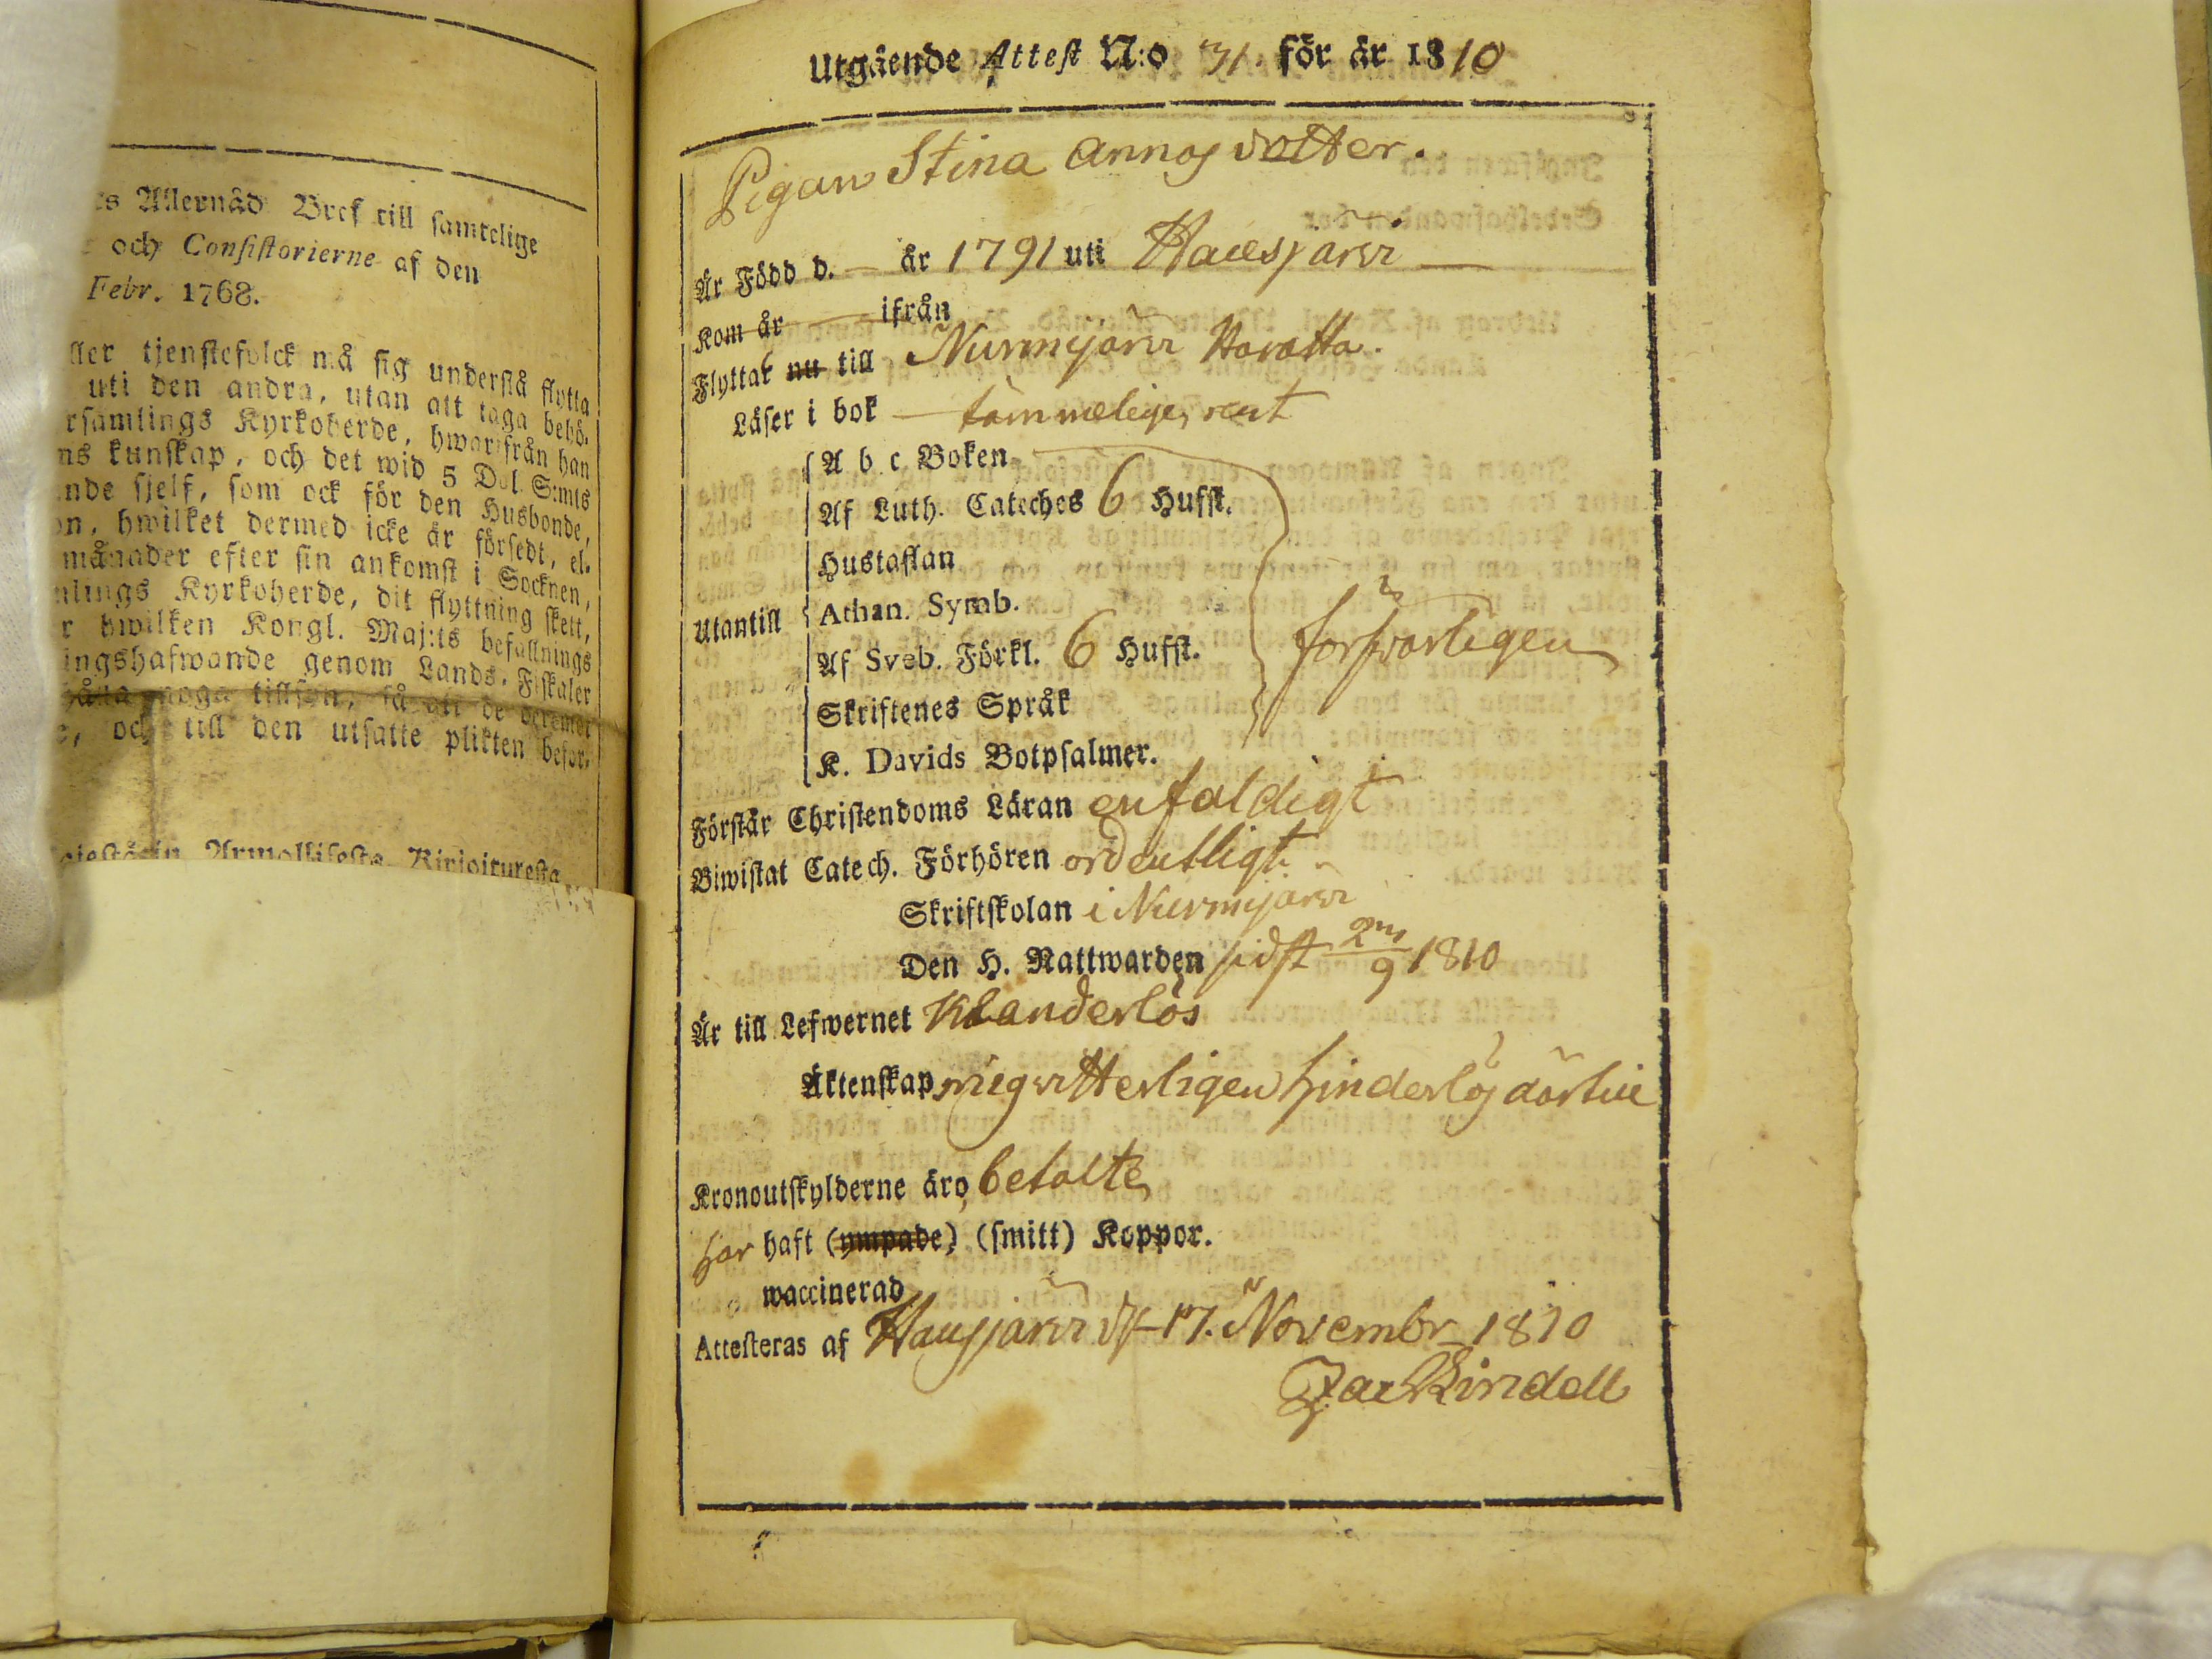 Allernåd Bref till samtelige
och Consistorierne af den
Febr. 1768.
tjenstefolck må sig understå flytta
uti den andra, utan att taga behö-
rsamlings Kyrkoherde, hwarifrån han
ns kunskap, och det wid 5 Dal. S:mts
nde sjelf, som ock för den Husbonde,
on, hwilket dermed icke är försedt, el-
månader efter sin ankomst i Socknen,
mlings Kyrkoherde, dit flyttning skett,
r hwilken Kongl. Maj:ts befallnings
ingshafwande genom Lands-Fiskaler
noga tillsen, så att de deremot
e, och till den utsatte plikten befor-
Armollisesta Kirjoituresta
Utgående Attest N:o 31. för år 1810
Pigan Stina Annosdotter.
Är Född d. — år 1791 uti Hausjärvi —
Kom år — ifrån
Flyttat nu till Nurmijärvi
Läser i bok — tämmelige, rent
A b c Boken
Af Luth. Cateches 6 Hufst.
Hustaflan
Athan. Symb.
Utantill
Af Sveb. Förkl. 6 Hufst. försvarligen
Skriftenes Språk
K. Davids Botpsalmer.
Förstår Christendoms Läran enfaldigt
Biwistat Catech. Förhören ordentligt
Skriftskolan i Nurmijärvi
Den H. Nattwarden sidst 1810
Är till Lefwernet Klanderlös
Äktenskap, mig vitterligen hinderlös därtill
Kronoutskylderne äro betalte
har haft (ympade) (smitt) Koppor.
waccinerad
Attesteras af Hausjärvi d. 17. Novembr 1810
Zac Lindell